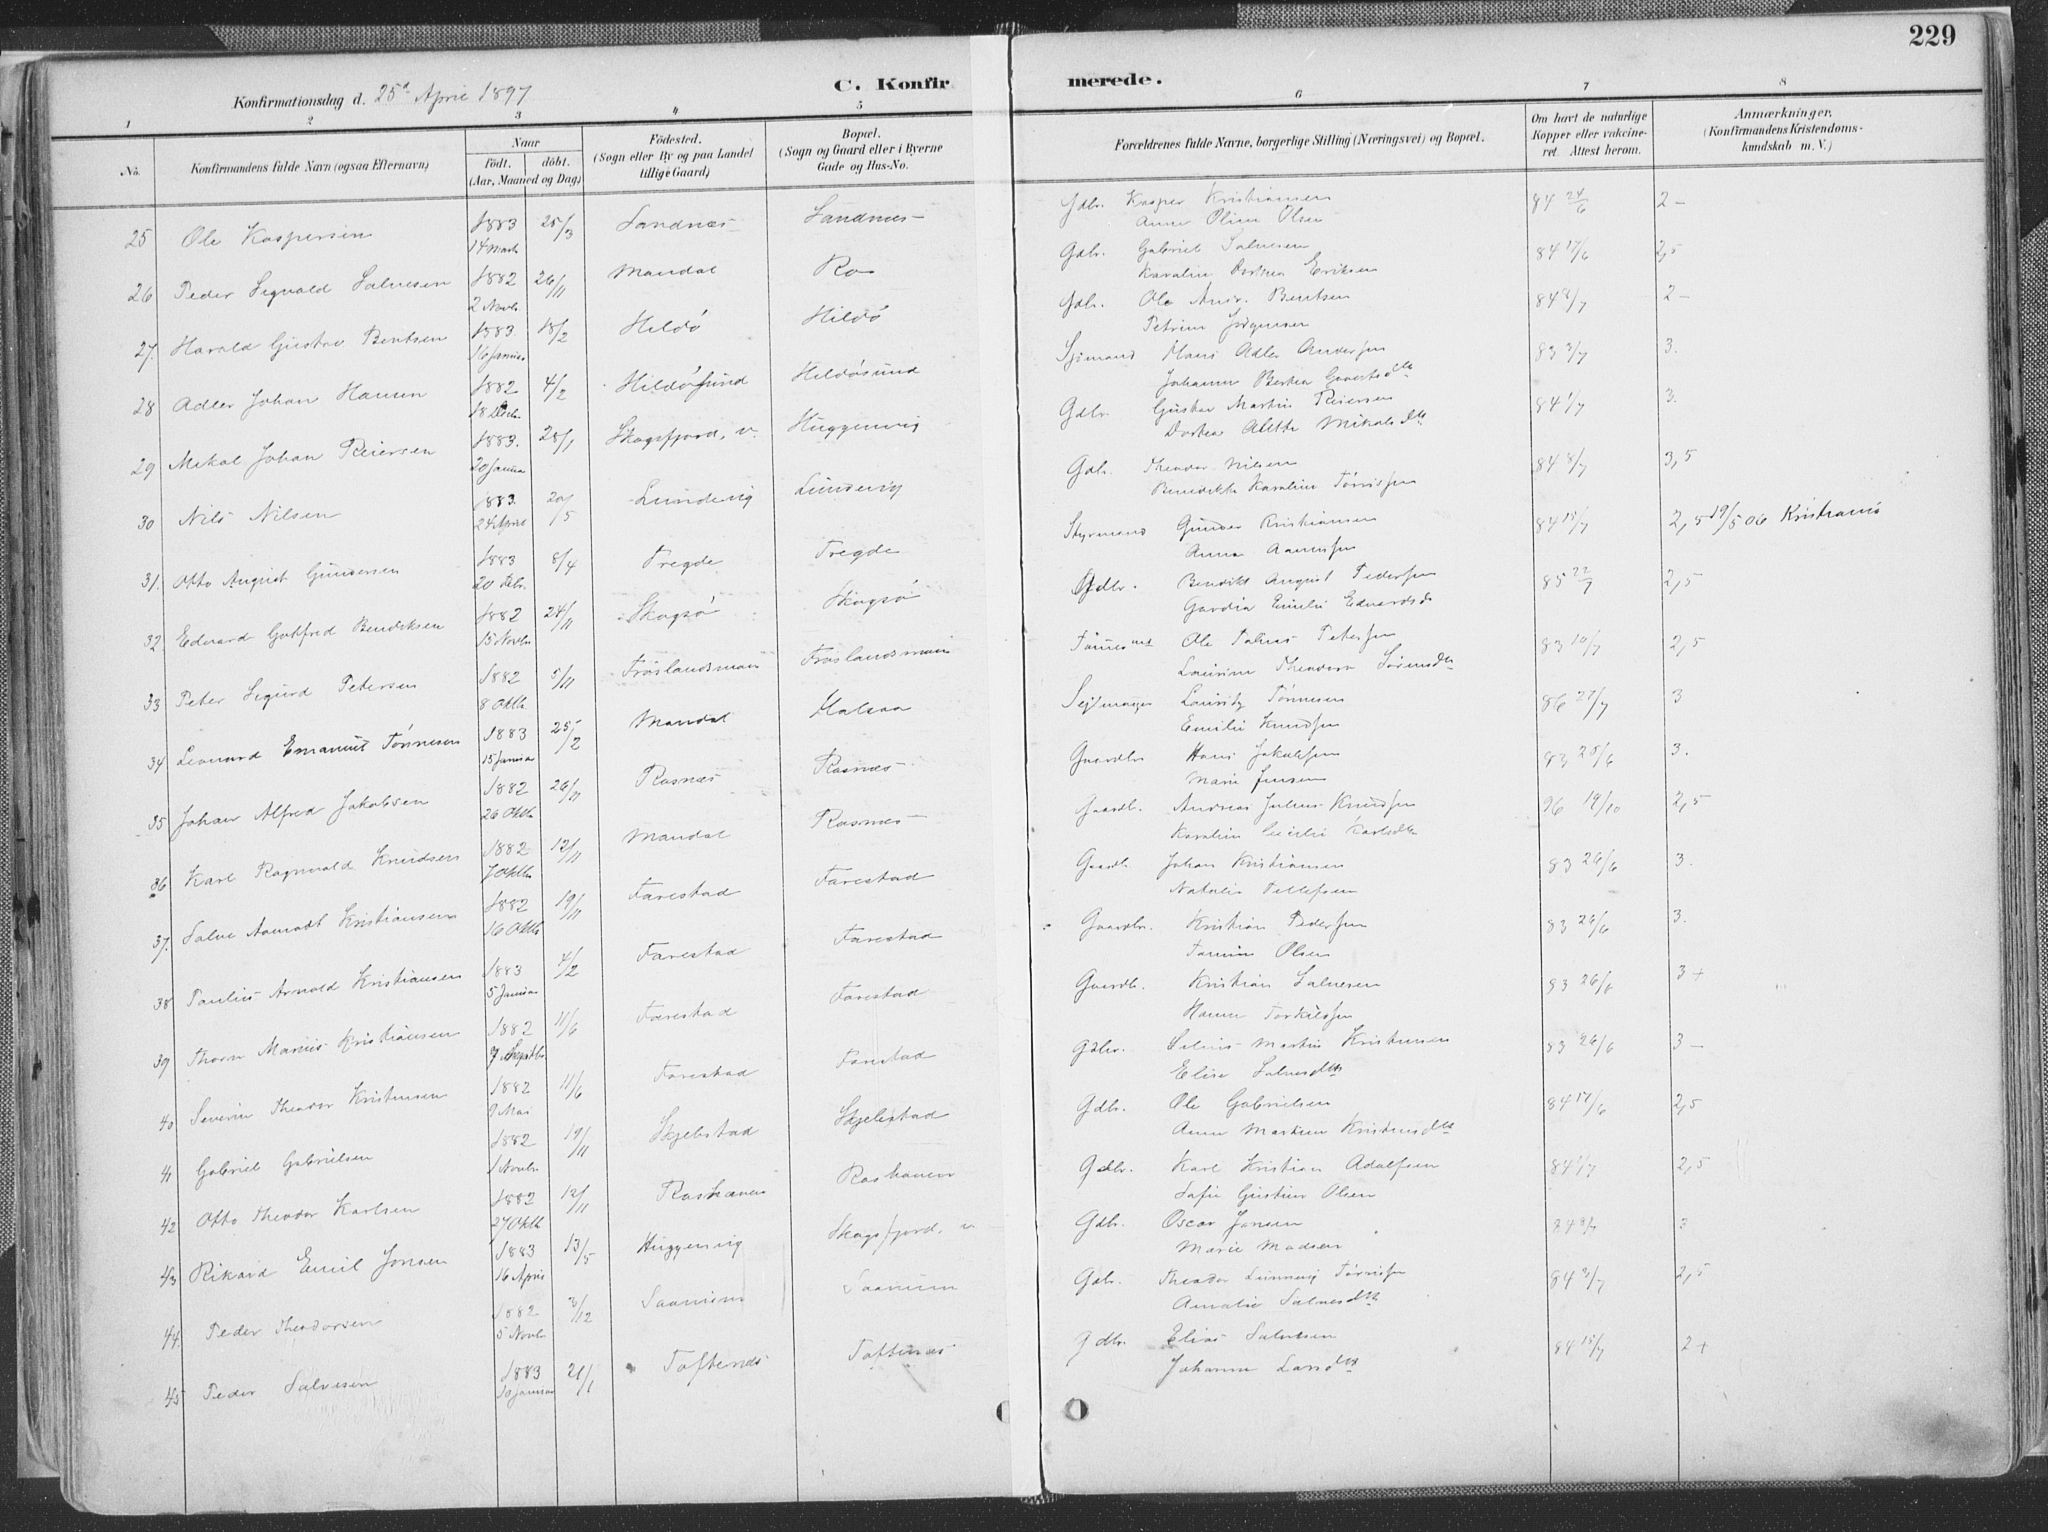 229
C. Konfirmerede.
Konfirmationsdag d. 25de April 1897
1 2 3 4 5 6 7 8
No. Konfirmandens fulde Navn (ogsaa Efternavn) Naar født. døbt. (Aar, Maaned og Dag) Fødested. (Sogn eller By og paa Landet tillige Gaard) Bopæl. (Sogn og Gaard eller i Byerne Gade og Hus-No. Forældrenes fulde Navne, borgerlige Stilling (Næringsvei) og Bopæl. Om havt de naturlige Kopper eller vakcineret. Attest herom. Anmærkninger. (Konfirmandens Kristendomskundskab m. V.)
25 Ole Kaspersen 1883 14 Marts 25/3 Sandnæs Sandnæs Gdbr. Kasper Kristiansen Anne Oline Olsen 84 24/6 2 -
26 Peder Sigvald Salvesen 1882 2 Novbr 26/11 Mandal Ro Gdbr. Gabriel Salvesen Karoline Dorthea Eriksen 84 17/6 2,5
27. Harald Gustav Bentsen 1883 16 Januar 18/2 Hildø Hildø Gdbr. Ole Andr. Bentsen Petrine Jørgensen 84 8/7 2 -
28 Adler Johan Hansen 1882 18 Decbr 4/2 Hildøsund Hildøsund Sjømand Hans Adler Andersen Johanne Bertea 83 3/7 3.
29 Mikal Johan Reiersen 1883. 20 Januar 28/1 Skogsfjord, v. Huggenvig Gdbr. Gustav Martin Reiersen Dorthea Alette Mikalsdtr 84 1/7 3.
30 Nils Nilsen 1883 24 April 20/5 Lundevig Lundevig Gdbr. Theodor Nilsen Benedikte Karoline Tønnessen 84 8/7 3,5
31. Otto August Gundersen 1883 20 Febr. 8/4 Tregde Tregde Styrmand Gunder Kristiansen Anna Aanensen 84 15/7 2,5 19/5 06 Kristiania
32 Edvard Gotfred Bendiksen 1882 15 Novbr 24/11 Skogsø Skogsø Gdbr. Bendikt August Pedersen Gardia Emilie Edvardsdtr 85 22/7 2,5
33 Peter Sigurd Petersen 1882 8 Oktb. 5/11 Frøslandsmoen Frøslandsmoen Ole Tobias Petersen Laurine Theodora Sørensdtr 83 10/7 2,5
34 Leonard Emanuel Tønnesen 1883 15 Januar 25/2 Mandal Halsaa Sejlmager Lauritz Tønnesen Emilie Knudsen 86 27/7 3
35 Johan Alfred Jakobsen 1882 26 Oktb. 26/11 Rosnæs Rosnæs Gaardbr Hans Jakobsen Marie Jensen 83 25/6 3.
36 Karl Ragnvald Knudsen 1882 7 Oktbr 12/11 Mandal Rosnæs Gaardb. Andreas Julius Knudsen Karoline Karlsdtr 96 19/10 2,5
37. Salve Aamodt Kristiansen 1882 16 Oktb 19/11 Farestad Farestad Gaardb. Johan Kristiansen Natalie Tellefsen 83 26/6 3.
38 Paulius Arnold Kristiansen 1883 5 Januar 4/2 Farestad Farestad Gaardbr. Kristian Pedersen Tomine Olsen 83 26/6 3.
39 Thorn Marius Kristiansen 1882 7 Septbr 11/6 Farestad Farestad Gaardb. Kristian Salvesen Hanne Torkildsen 83 26/6 3+
40 Severin Theodor Kristensen 1882 9 Mai 11/6 Farestad Farestad Gdbr. Martin Kristensen Elise Salvesdtr 83 26/6 3 -
41 Gabriel Gabrielsen 1882 1 Novbr. 19/11 Skjebstad Skjebstad Gdbr. Ole Gabrielsen Anne Martine Kristensdtr 84 17/6 2,5
42 Otto Theodor Karlsen 1882 27 Oktb 12/11 Roshaven Roshaven Gdbr. Karl Kristian Adolfsen Sofie Gustine Olsen 84 1/7 2,5
43 Rikard Emil Jonsen 1883 16 April 13/5 Huggenvig Skogsfjord, v. Gdbr. Oscar Jonsen Marie Madsen 84 8/7 3
44 Peder Theodorsen 1882 5 Novb 3/12 Saanum Saanum Gdbr. Theodor Tønnessen Amalie Salvesdtr 84 3/7 2,5
45 Peder Salvesen 1883 10 Januar 21/1 Toftenæs Toftenæs Gdbr. Elias Salvesen Johanne Larsdtr 84 15/7 2+